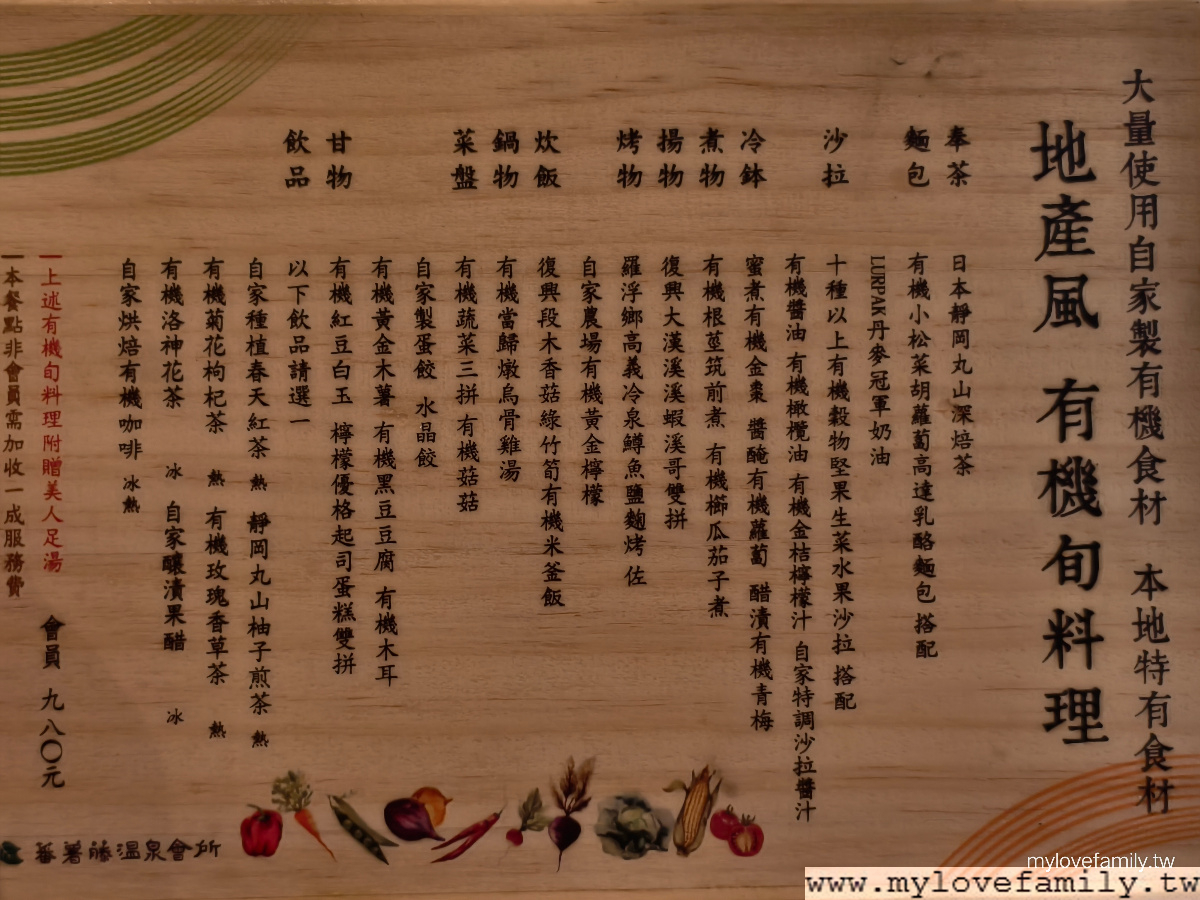 大量使用自家製有機食材 本地特有食材
地產風 有機旬料理
奉茶 日本靜岡丸山深焙茶
麵包 有機小松菜胡蘿蔔高達乳酪麵包 搭配
LURPAK丹麥冠軍奶油
沙拉 十種以上有機穀物堅果生菜水果沙拉 搭配
有機醬油 有機橄欖油 有機金桔檸檬汁 自家特調沙拉醬汁
冷鉢 蜜煮有機金棗 醬醃有機蘿蔔 醋漬有機青梅
煮物 有機根莖筑前煮 有機櫛瓜茄子煮
揚物 復興大漢溪溪蝦溪哥雙拼
烤物 羅浮鄉高義冷泉鱒魚鹽麴烤 佐
自家農場有機黃金檸檬
炊飯 復興段木香菇綠竹筍有機米釜飯
鍋物 有機當歸燉烏骨雞湯
菜盤 有機蔬菜三拼 有機菇菇
自家製蛋餃 水晶餃
有機黃金木薯 有機黑豆豆腐 有機木耳
甘物 有機紅豆白玉 檸檬優格起司蛋糕雙拼
飲品 以下飲品請選一
自家種植春天紅茶 熱 靜岡丸山柚子煎茶 熱
有機菊花枸杞茶 熱 有機玫瑰香草茶 熱
有機洛神花茶 冰 自家釀漬果醋 冰
自家烘焙有機咖啡 冰熱
上述有機旬料理附贈美人足湯 會員 九八〇元
本餐點非會員需加收一成服務費
蕃薯藤溫泉會所
mylovefamily.tw
www.mylovefamily.tw